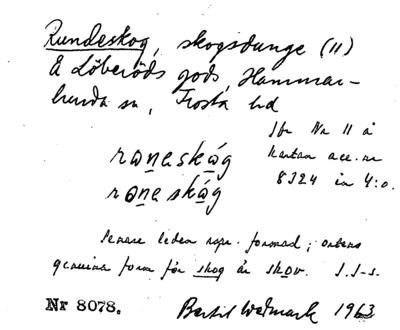 Rundeskog, skogsdunge (11)
Å Löberöds gods, Hammar-
lunda sn, Frosta hd
Jfr Nr 11 å
kartan acc.nr
8324 in 4:o.
raṉeskåg
raṉeskåg
Senare leden repr. formad; ortens
genuina form för skog är skov. I.I-s.
Nr 8078. Bertil Wedmark 1963